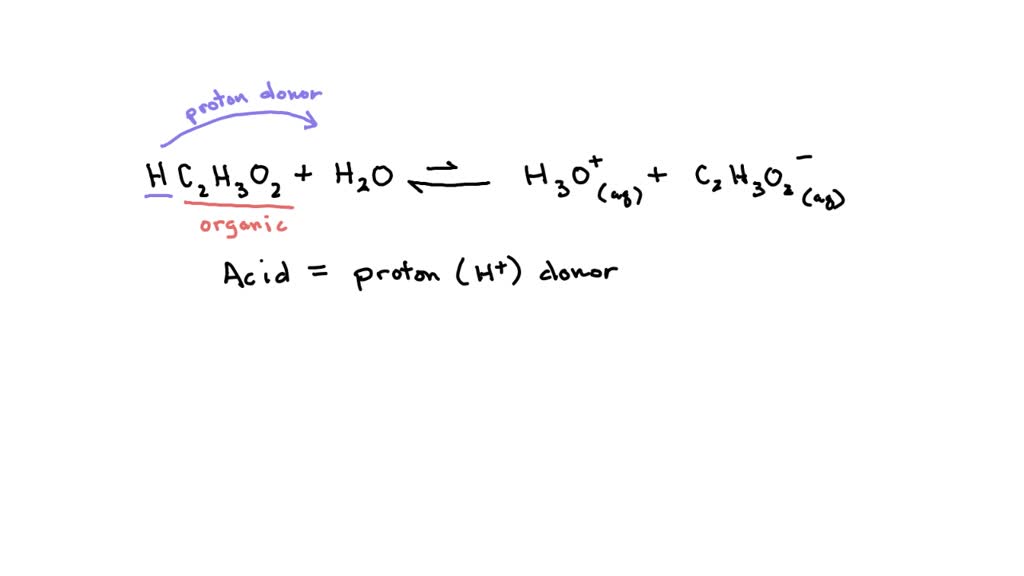 proton donor
HC₂H₃O₂ + H₂O ⇌ H₃O⁺(aq) + C₂H₃O₂⁻(aq)
organic
Acid = proton (H⁺) donor